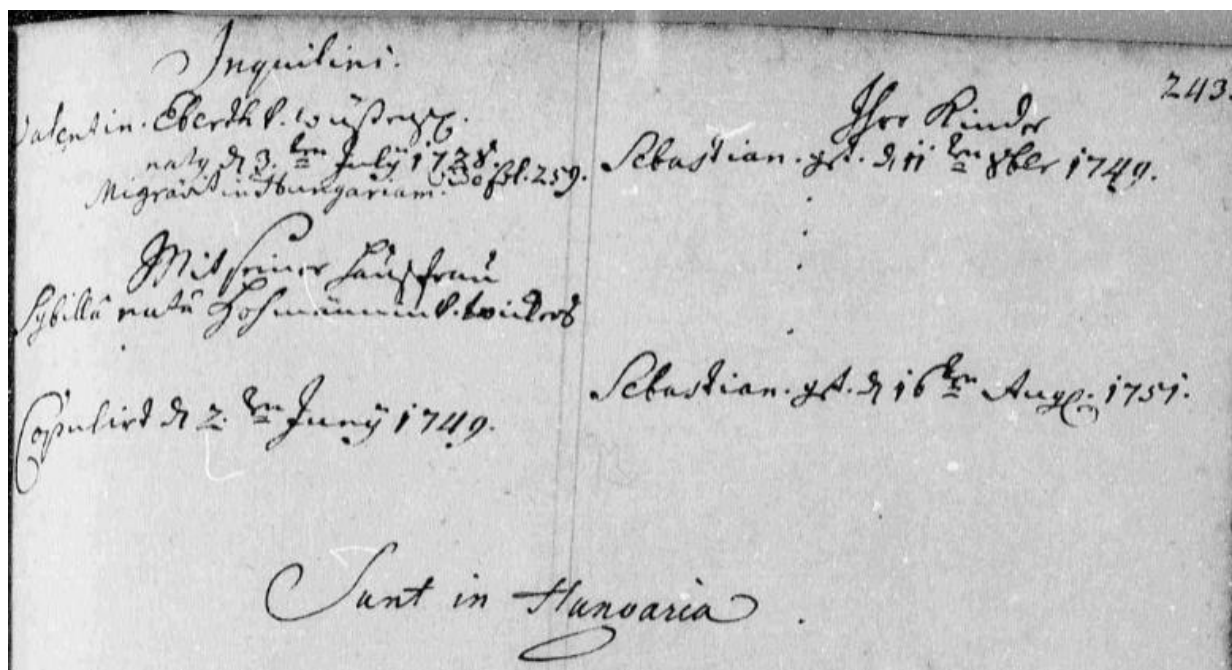 Inquilini.
Valentin. Eberth v.
natg d 3. ten July 1728. fol. 259.
Migravit in Hungariam.
Mit seiner Haußfrau
Sybilla nata v.
Copulirt d 2. ten Juny 1749.
243.
Ihre Kinder
Sebastian. gst. d 11 ten 8ber 1749.
Sebastian. gst. d 16 ten Aug. 1751.
Sunt in Hungaria